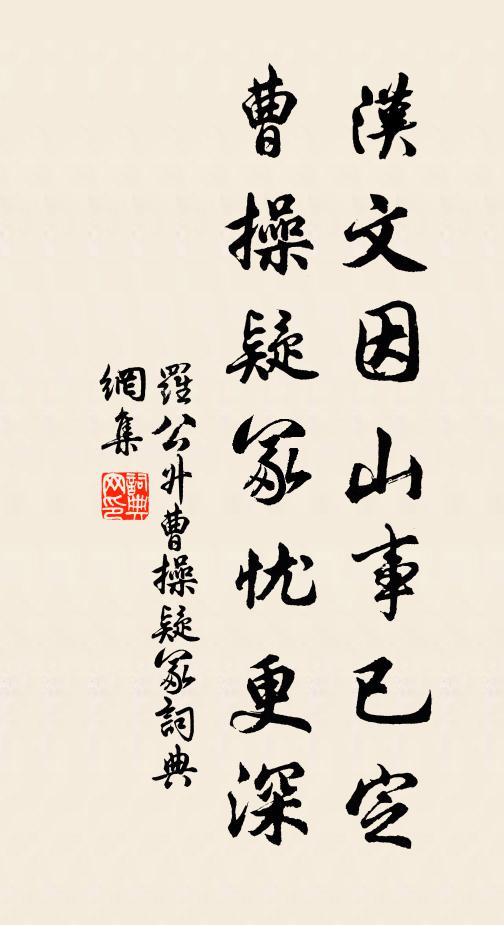 漢文因山事已定
曹操疑冢忧更深
羅公升曹操疑冢詞典
網集
詞典
网印